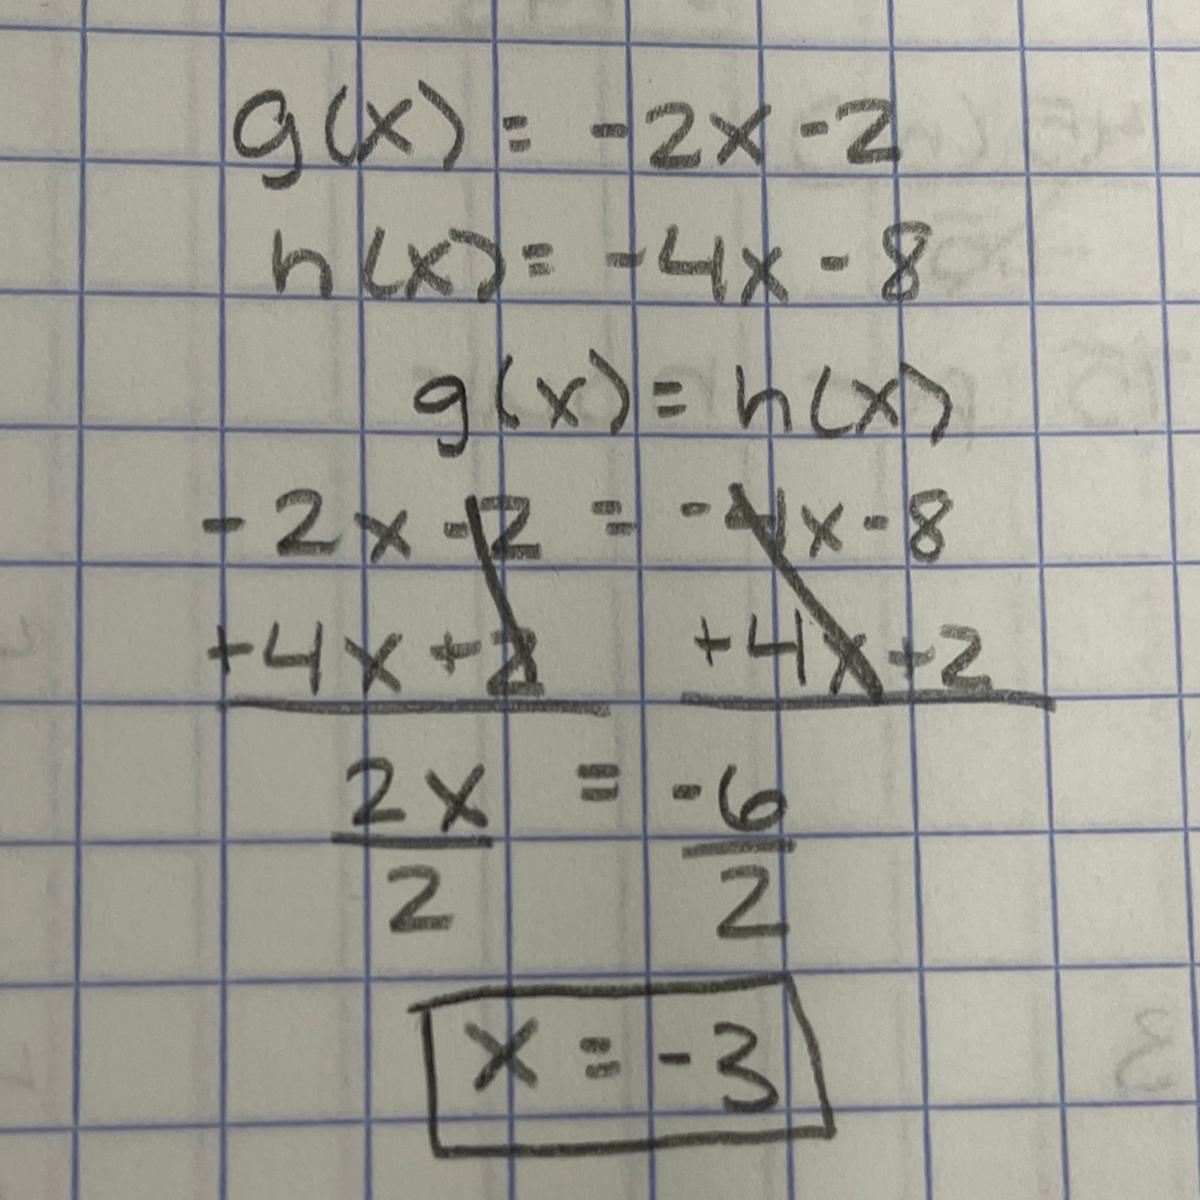 g(x) = -2x - 2
h(x) = -4x - 8
g(x) = h(x)
-2x - 2 = -4x - 8
+4x + 2 +4x + 2
2x = -6
2 2
x = -3